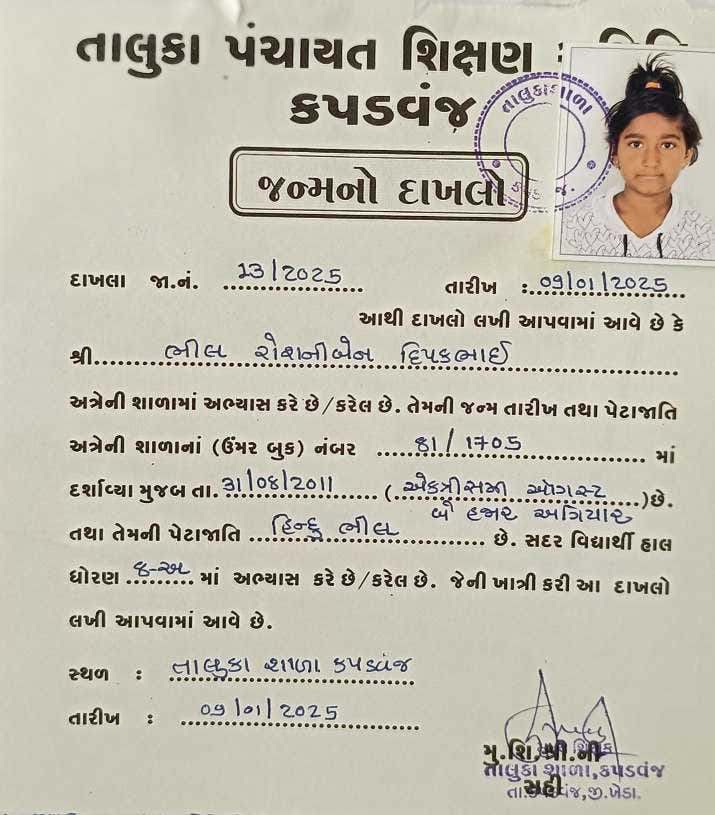 તાલુકા પંચાયત શિક્ષણ
કપડવંજ
તાલુકાશાળા
જન્મનો દાખલો
દાખલા જા.નં. 13/2025 તારીખ : 09/01/2025
આથી દાખલો લખી આપવામાં આવે છે કે
શ્રી ભીલ રોશનીબેન દિપકભાઈ
અત્રેની શાળામાં અભ્યાસ કરે છે/કરેલ છે. તેમની જન્મ તારીખ તથા પેટાજાતિ
અત્રેની શાળાનાં (ઉંમર બુક) નંબર 81/1705 માં
દર્શાવ્યા મુજબ તા. 31/08/2011 (એકત્રીસમી ઓગસ્ટ
બે હજાર અગિયાર)છે.
તથા તેમની પેટાજાતિ હિન્દુ ભીલ છે. સદર વિદ્યાર્થી હાલ
ધોરણ 8-અ માં અભ્યાસ કરે છે/કરેલ છે. જેની ખાત્રી કરી આ દાખલો
લખી આપવામાં આવે છે.
સ્થળ : તાલુકા શાળા કપડવંજ
તારીખ : 09/01/2025
મુ.શિ.શ્રી.ની
સહી
તાલુકા શાળા,કપડવંજ
તા.કપડવંજ,જી.ખેડા.